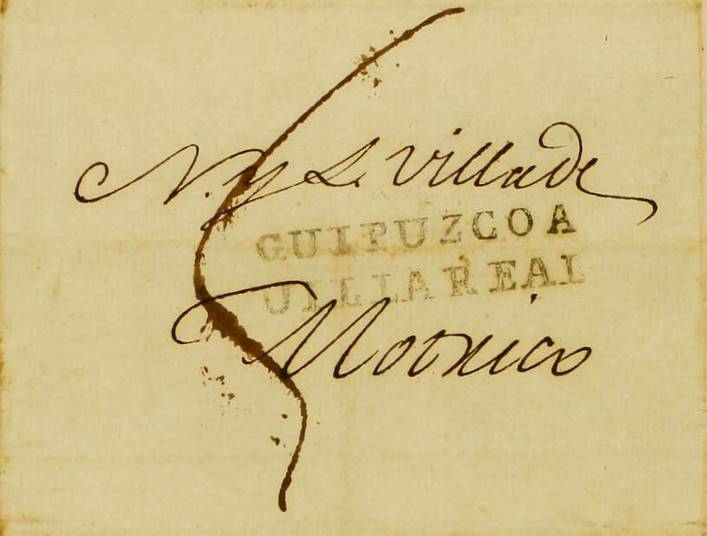 N. y L. Villa de
GUIPUZCOA
VILLAREAL
Motrico